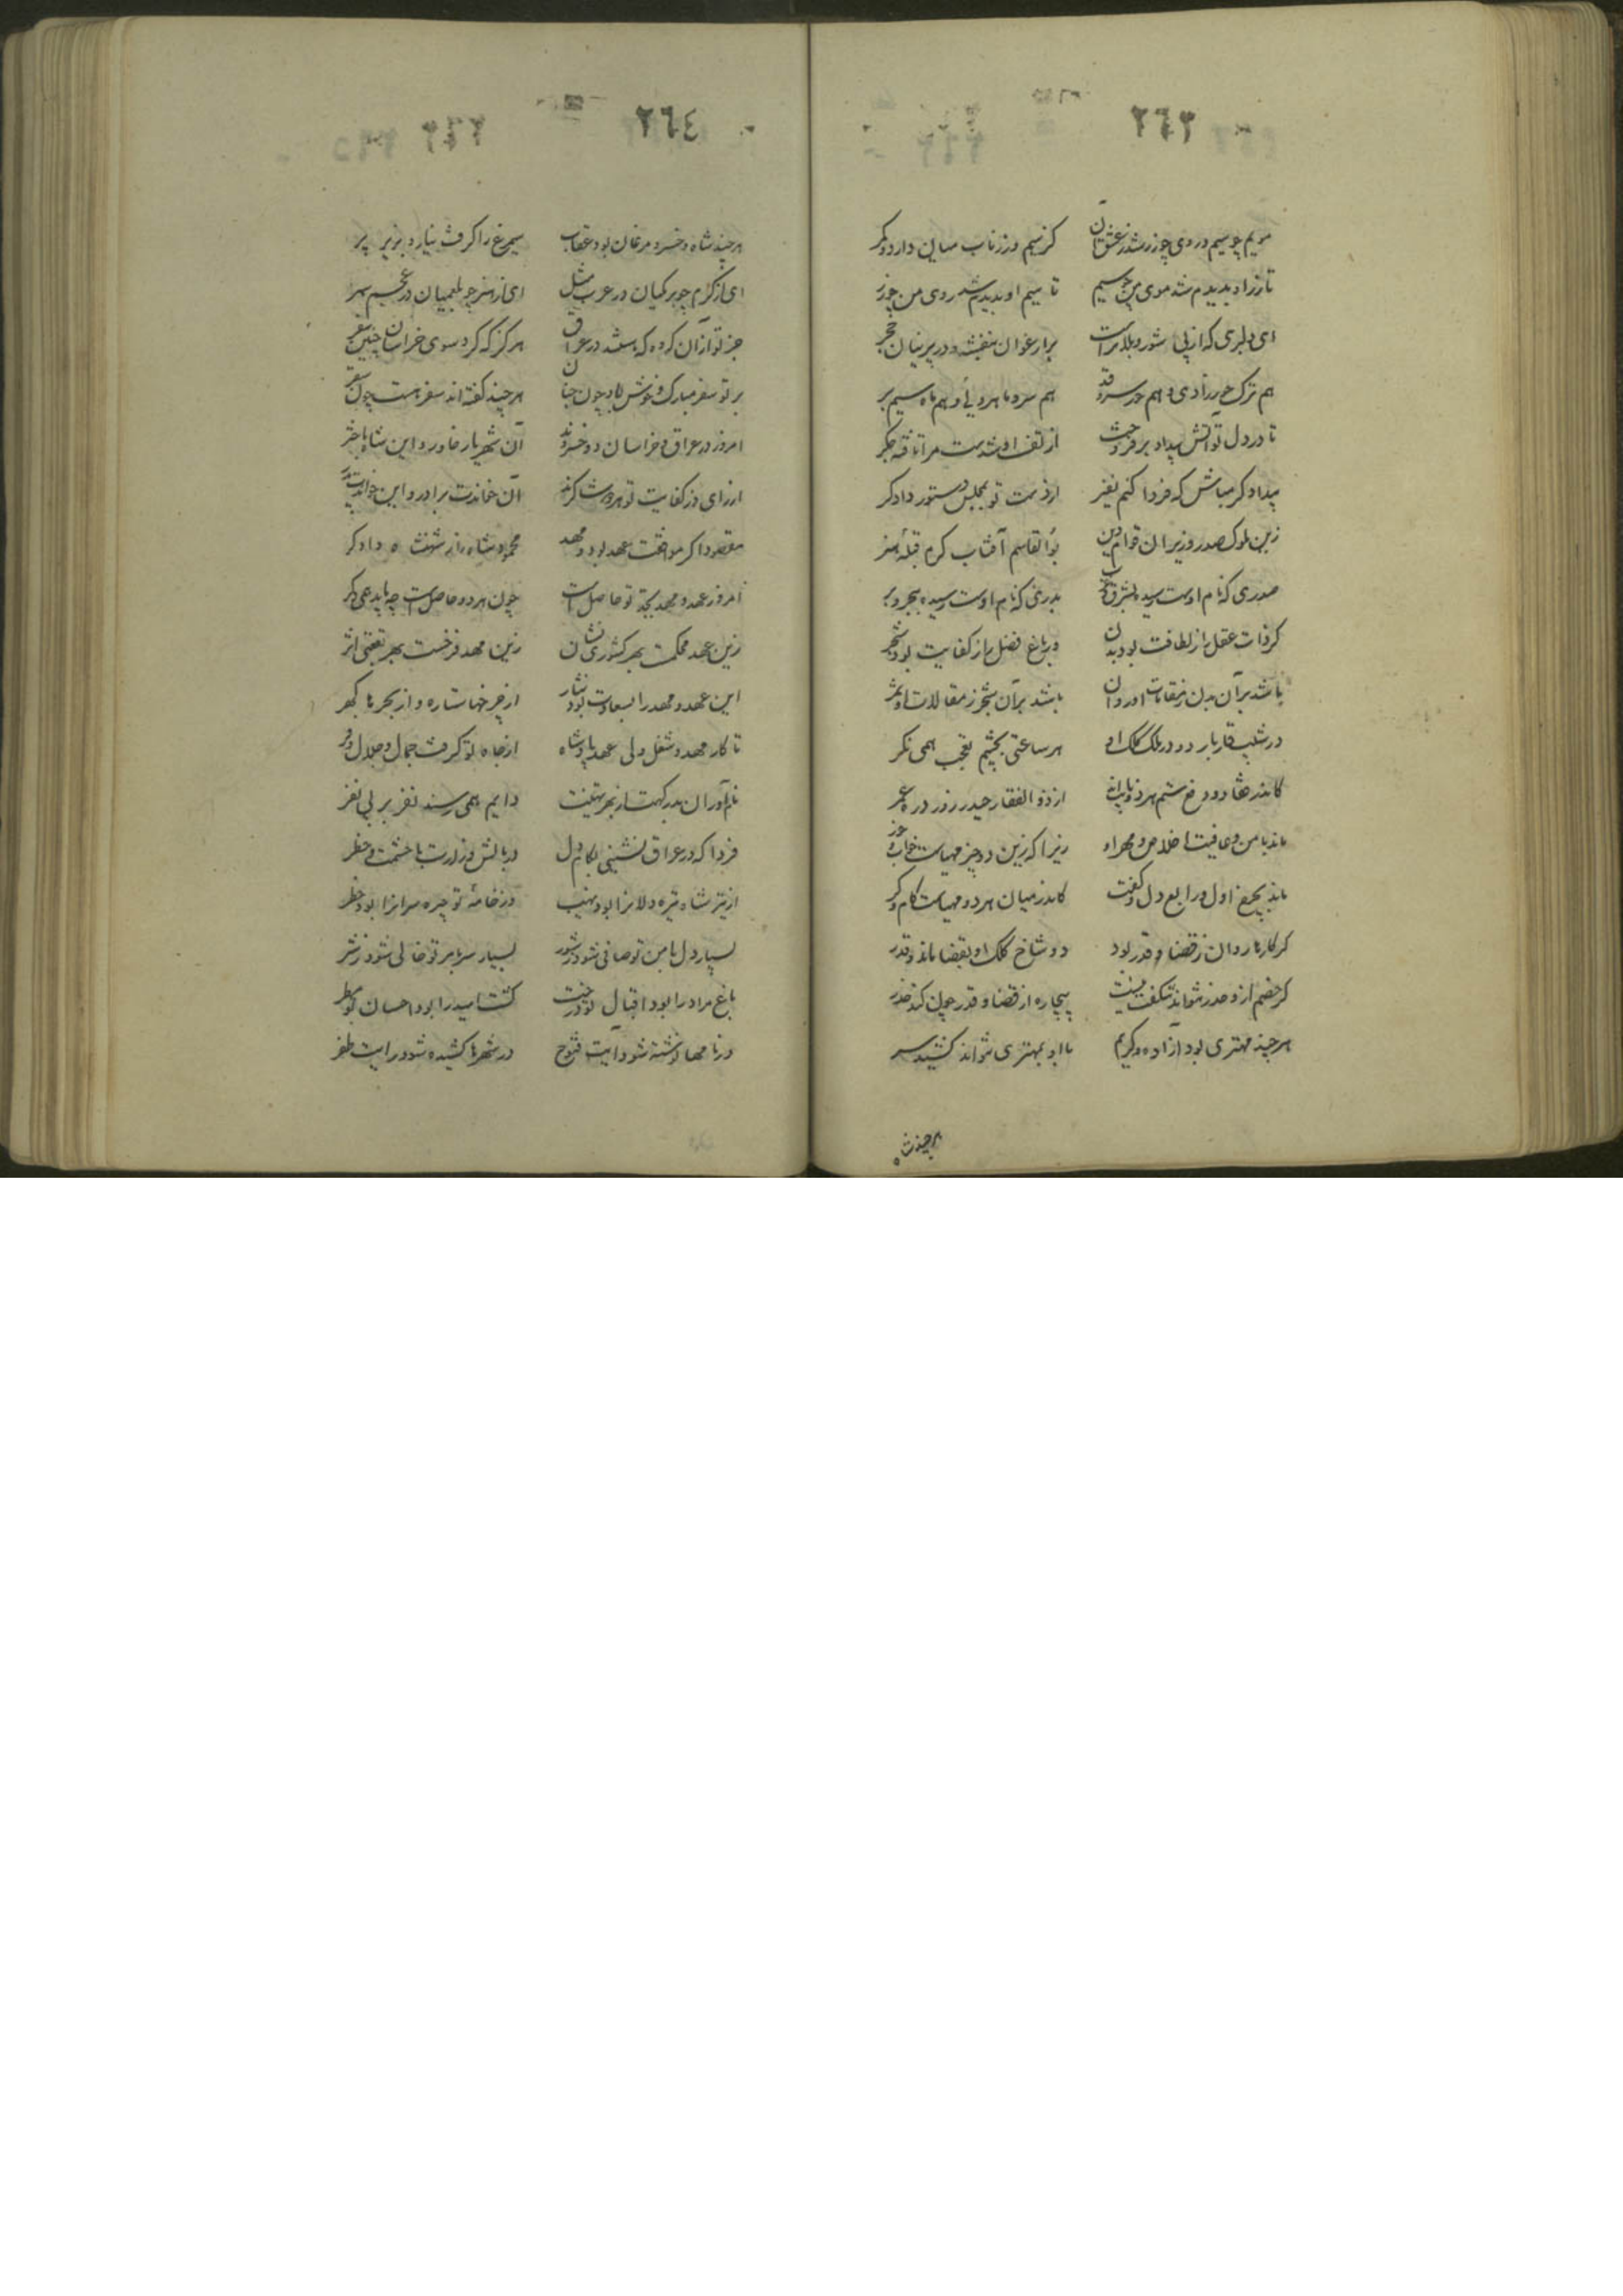 ٢٦٣
مویم چو سیم و روی چو زر شد ز عشق آن کز سیم و زر ناب میان دارد و کمر
تا زر او بدیدم شد موی من چو سیم تا سیم او بدیدم شد روی من چو زر
ای دلبری که از پی شور و بلا تراست بر ارغوان بنفشه و در پرنیان حجر
هم ترک حورزادی و هم حور سروقد هم سرو ماهرویی و هم ماه سیم بر
تا در دل تو آتش بیداد برفروخت از تف او شدست مرا تافته جگر
بیدادگر مباش که فردا کنم نفیر از دست تو بمجلس دستور دادگر
زین ملوک صدر وزیران قوام دین بوالقاسم آفتاب کرم قبله هنر
صدری که نام اوست رسیده بشرق و غرب بدری که نام اوست رسیده ببحر و بر
گر ذات عقل را ز لطافت بود بدن ور باغ فضل را ز کفایت بود شجر
باشد بر آن بدن ز مقامات او روان باشد بر آن شجر ز مقالات او ثمر
در شیب قار بار دو در ملک کلک او هر ساعتی بچشم تعجب همی نگر
از ذوالفقار حیدر و زور دره عمر
ماند بامن و عافیت اخلاص و مهر او زیرا که زین دو چیز مهیاست خواب و خور
ماند بچرخ اول و رابع دل و کفت کاندر میان هر دو مهیاست کام و کر
گر کارها روان ز قضا و قدر بود دو شاخ کلک او بقضا ماند و قدر
گر خصم ازو حذر نتواند شگفت نیست بیچاره از قضا و قدر چون کند حذر
هرچند مهتری بود آزاده و کریم با او بمهتری نتواند کشید سر
هرچند شاه
٢٦٤
هرچند شاه و خسرو مرغان بود عقاب سیمرغ را گرفت نیارد بزیر پر
ای از کرم چو برمکیان در عرب مثل ای از هنر چو بلعمیان در عجم سمر
جز تو از آن گروه که باشند در عراق هرگز که کرد سوی خراسان چنین سفر
بر تو سفر مبارک و خوش باد چون جنان هرچند گفته‌اند سفر هست چون سقر
امروز در عراق و خراسان دو خسروند آن شهریار خاور و این شاه باختر
از رای و ز کفایت تو هر دو شاکرند آن خواندت برادر و این خواندت پدر
مقصود اگر موافقت عهد بود و مهد محمود شاه را ز شهنشاه دادگر
امروز عهد و مهد بجد تو حاصل است چون هر دو حاصل است چه باید همی دگر
زین عهد محکمست بهر کشوری نشان زین مهد فرخست بهر بقعتی اثر
این عهد و مهد را بسعادت بود نثار از چرخها ستاره و از بحرها گهر
تا کار مهد و شغل ولی عهد پادشاه از جاه تو گرفت جمال و جلال و فر
نام‌آوران بدرگهت از بهر تهنیت دایم همی رسند نفر بر پی نفر
فردا که در عراق نشینی بکام دل در بالش وزارت با حشمت و خطر
از تیر شاه تیره دلانرا بود نهیب وز خامه تو خیره سرانرا بود خطر
بسیار دل بامن تو صافی شود ز شور بسیار سر ببر تو خالی شود ز شر
باغ مراد را بود اقبال تو درخت کشت امید را بود احسان تو مطر
در نامها نوشته شود آیت فتوح در شهرها کشیده شود رایت ظفر